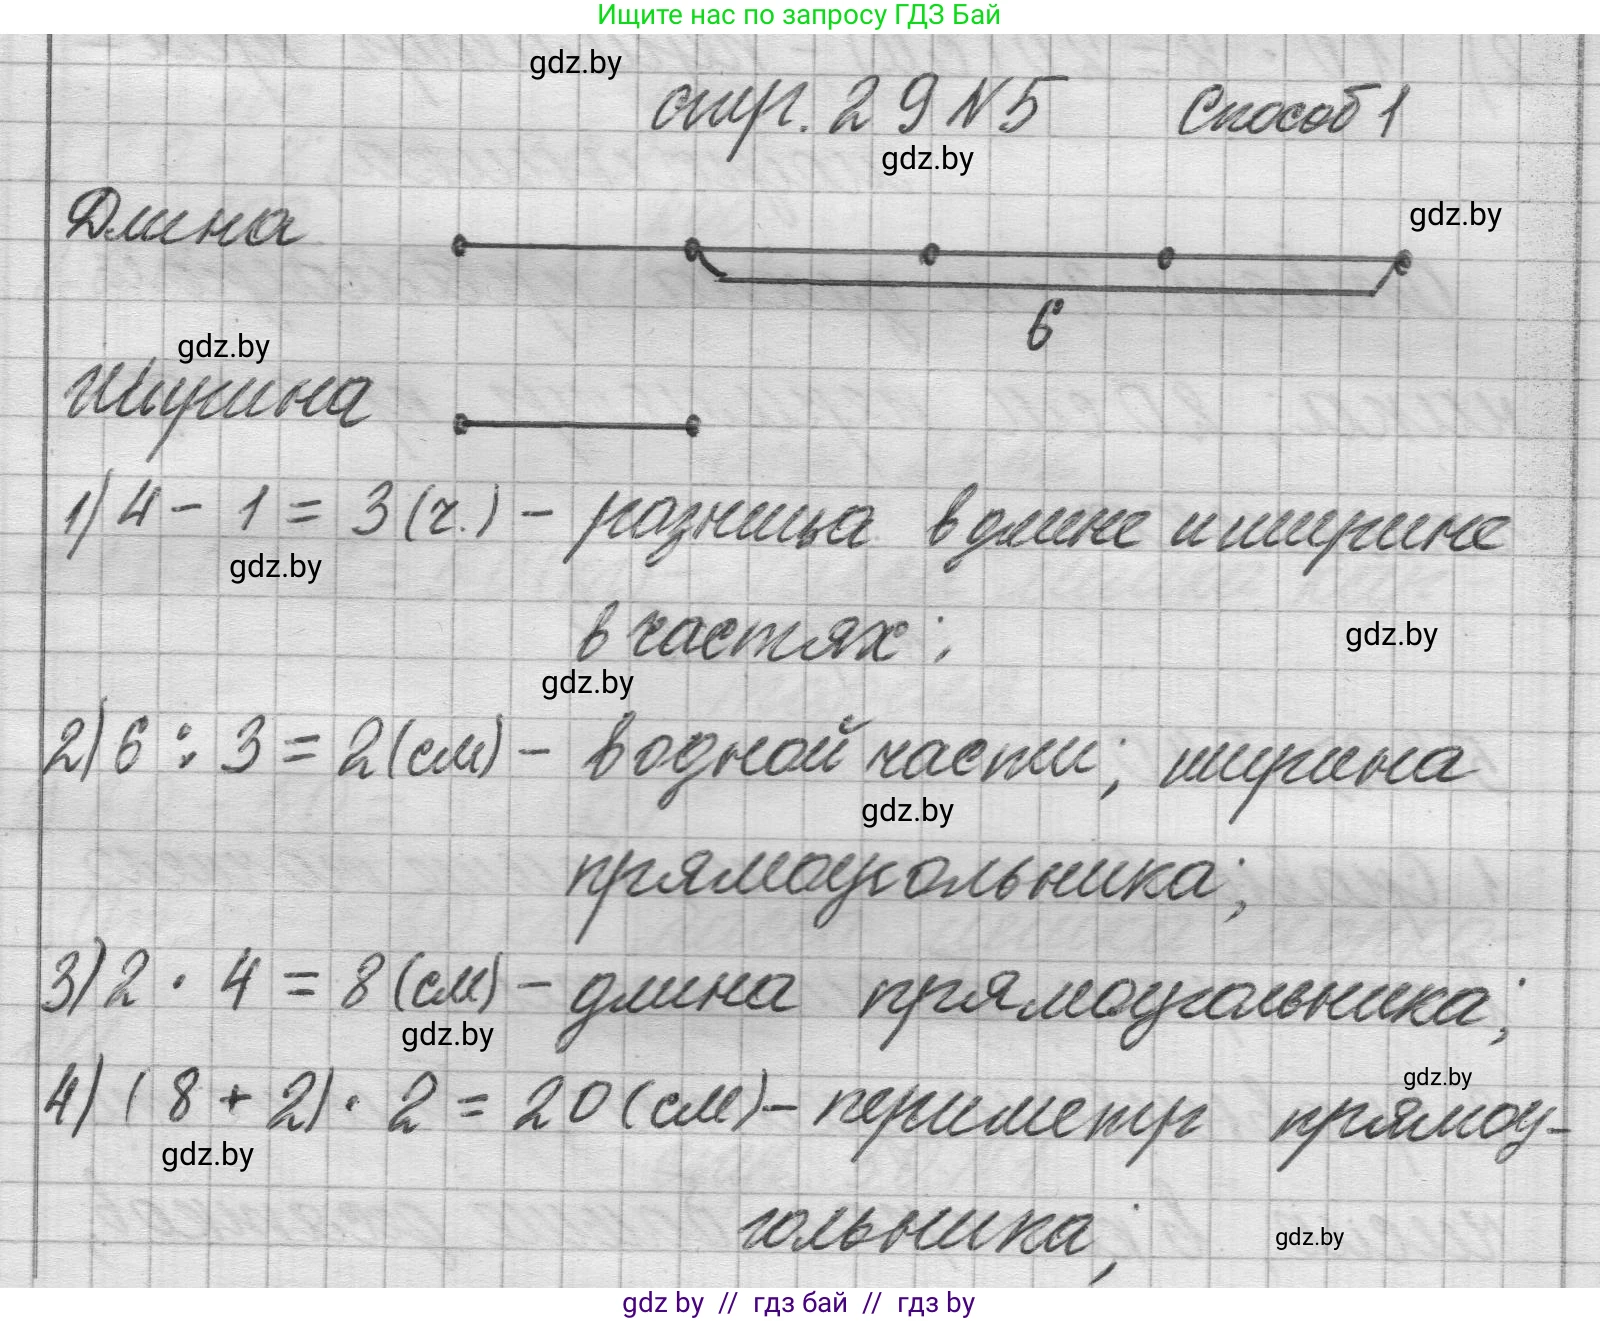 Ищите нас по запросу ГДЗ Бай
gdz.by
стр. 29 N 5 Способ 1
gdz.by
gdz.by
Длина
6
gdz.by
Ширина
1) 4 - 1 = 3 (ч.) - разница в длине и ширине
gdz.by
в частях;
gdz.by
gdz.by
2) 6 : 3 = 2 (см) - в одной части; ширина
gdz.by
прямоугольника;
3) 2 · 4 = 8 (см) - длина прямоугольника;
gdz.by
gdz.by
4) (8 + 2) · 2 = 20 (см) - периметр прямоу-
gdz.by
гольника;
gdz.by
gdz by // гдз бай // гдз by